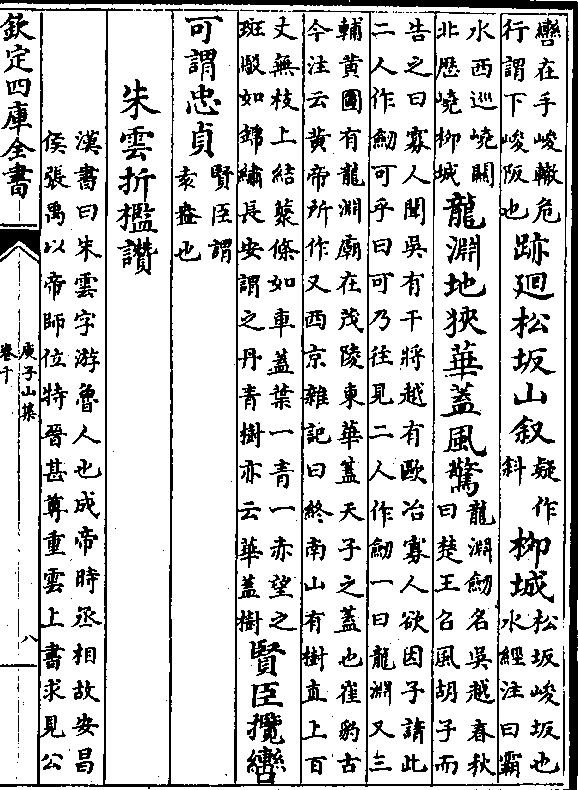 轡在手峻轍危
行謂下峻阪也
跡廻松坂山叙
疑作
斜
栁城
松坂峻坂也
水經注曰霸
水西巡嶢闗
北歴嶢栁城
龍淵地狹華蓋風驚
龍淵劒名吳越春秋
曰楚王召風胡子而
告之曰寡人聞吳有干將越有歐冶寡人欲因子請此
二人作劒可乎曰可乃往見二人作劒一曰龍淵又三
輔黄圖有龍淵廟在茂陵東華蓋天子之蓋也崔豹古
今注云黄帝所作又西京雜記曰終南山有樹直上百
丈無枝上結藂條如車蓋葉一青一赤望之
斑駮如錦繡長安謂之丹青樹亦云華蓋樹
賢臣攬轡
可謂忠貞
賢臣謂
袁盎也
朱雲折檻讚
漢書曰朱雲字游魯人也成帝時丞相故安昌
侯張禹以帝師位特晉甚尊重雲上書求見公
欽定四庫全書
庾子山集
卷十
八